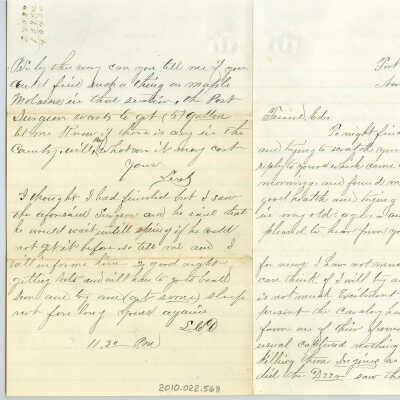 By the way can you tell me if you
could find such a thing as maple
Molasses in that section, the Post
Surgeon wants to get (5) Gallon
let me Know if there is any in the
Country, & what it may cost
Your
I thought I had finished but I saw
the aforesaid Surgeon and he said that
he would wait until spring if he could
not get it before so tell me and I
will inform him good night
getting late and will have to go to bed
soon and try and get some sleep
not for long yours again
L.C.D
11.30 Pm
2010.022.569
Friend Eds.
To night find
and trying to
reply to yours which came
morning and found m
good health and trying
in my old age
pleased to hear from you
for news I have not m
can think of I will try a
is not much Excitement
present the Cavalry ha
from one of their
usual captured nothing
killing three Injuns
did the saw th